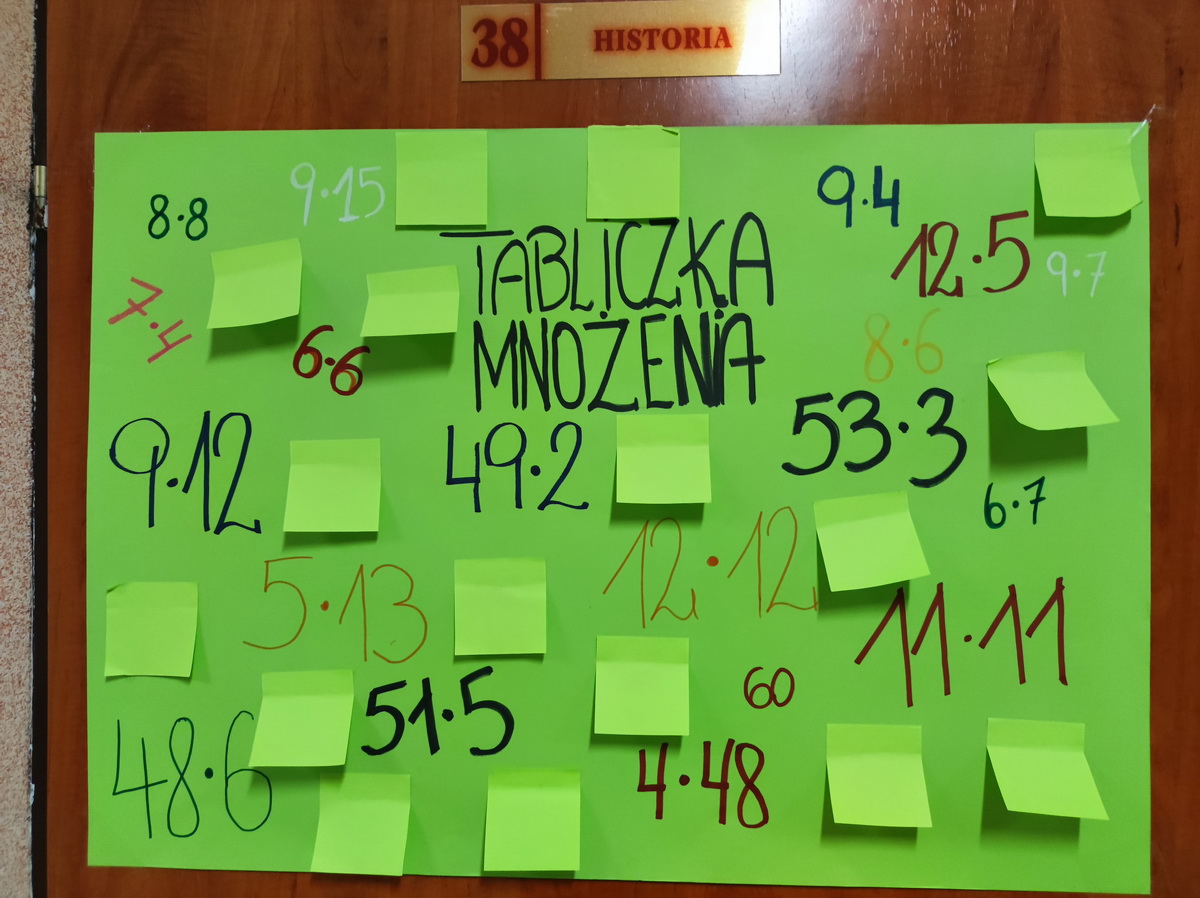 38 HISTORIA
8·8
9·15
9·4
12·5
9·7
TABLICZKA
MNOŻENiA
7·4
6·6
8·6
9·12
49·2
53·3
6·7
5·13
12·12
11·11
51·5
60
48·6
4·48